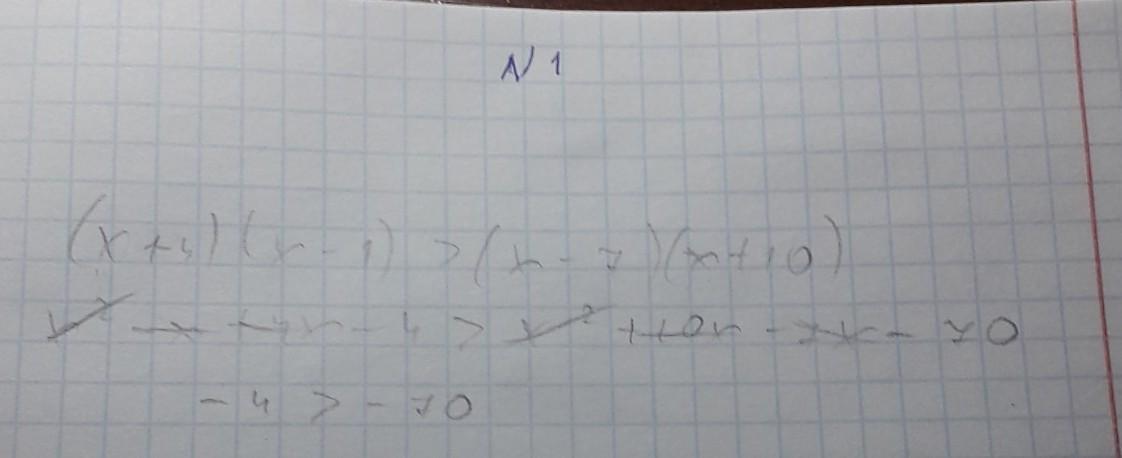 N 1
(x+4)(x-1)>(x-7)(x+10)
x²-x+4x-4>x²+10x-7x-70
-4>-70